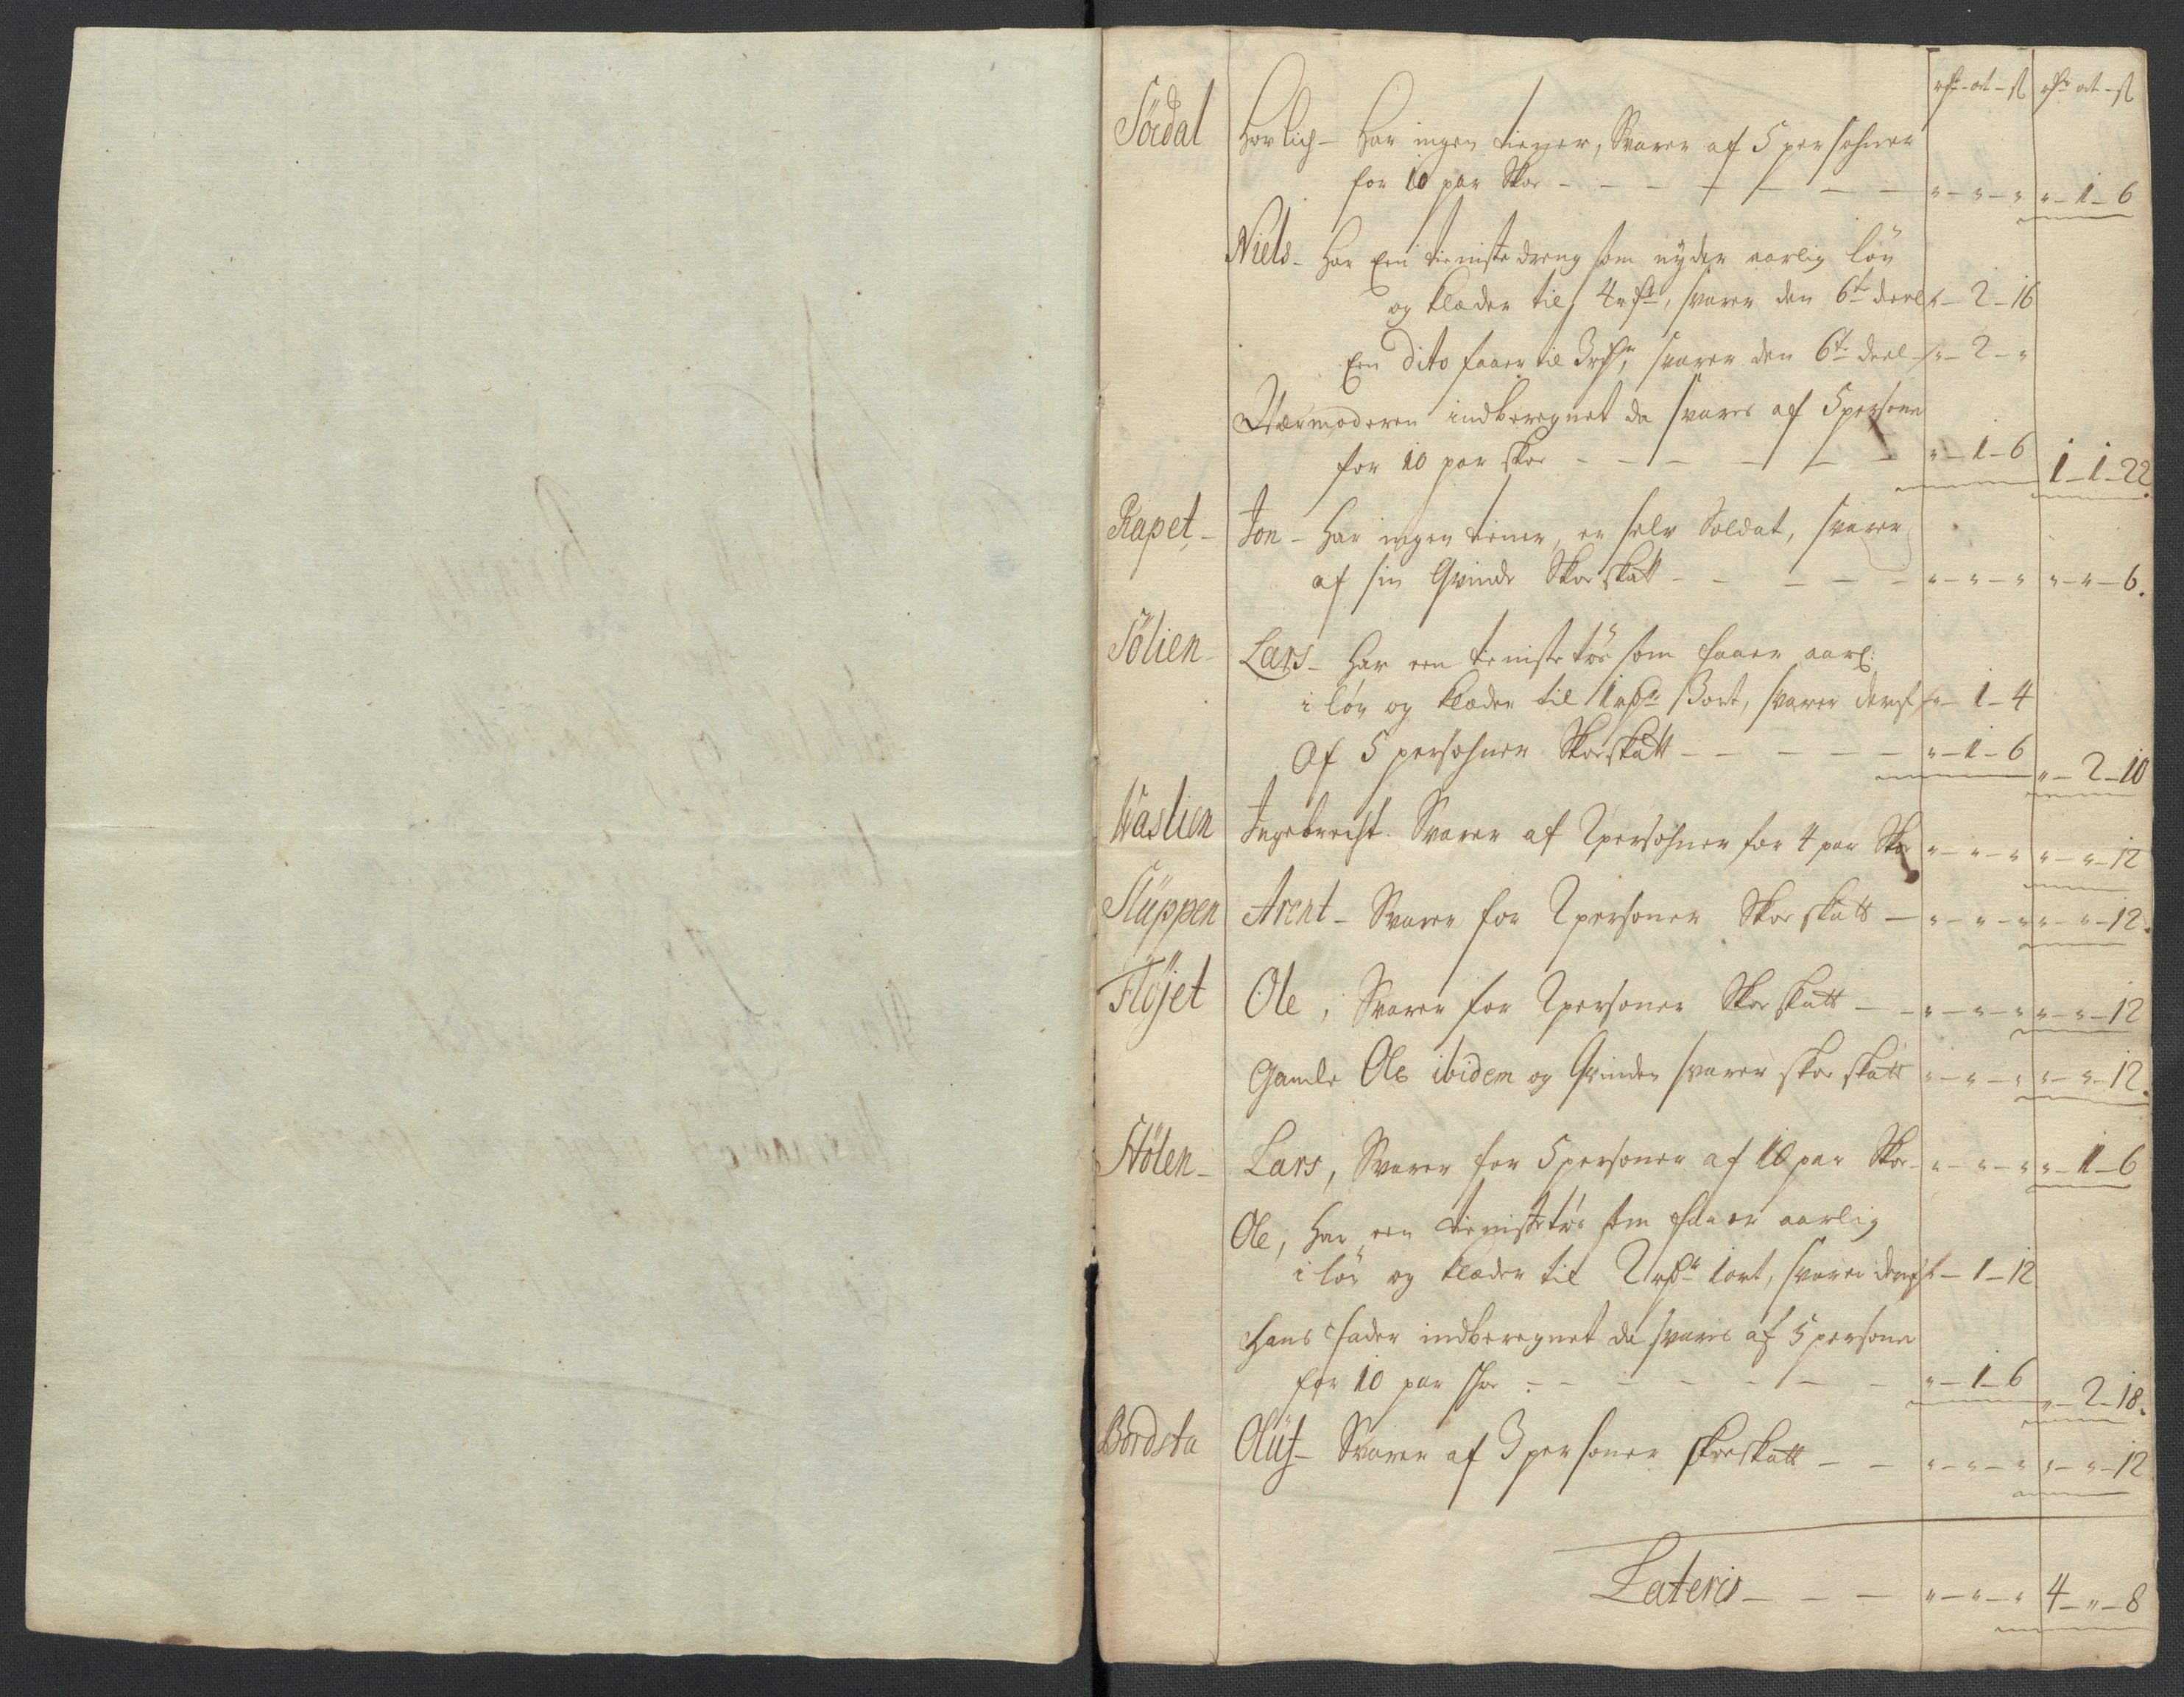 rdr-ort-ß rdr ort-ß
Sördal Horlich- Har ingen tiener, Svarer af 5 persohner
for 10 par Skoe - - - - - - - "-"-" "-1-6
Niels- Har Een tieniste dreng som nyder aarlig løn
og klæder til 4 rdr, svarer den 6te deel "-2-16
Een dito faaer til 3 rdr, svarer den 6te deel "-2-"
Værmoderen indberegnet da svares af 5 persone
for 10 par skoe - - - - - - "-1-6 1-1-22
Rapet- Jon- Har ingen tiener, er selv Soldat, svarer
af sin Qvinde Skoe skatt - - - - - "-"-" "-"-6.
Sölien- Lars- Har een tieniste tös som faaer aarl:
i løn og klæder til 1 rdr 3 ort, svarer deraf "-1-4
Af 5 persohner Skoe skatt - - - - - "-1-6 "-2-10
Waslien Ingebrecht. Svarer af 2 persohner for 4 par Skoe "-"-" "-"-12
Slüppen Arent- Svarer for 2 personer Skoe skatt - "-"-" "-"-12.
Flöjet Ole, Svarer for 2 personer Skoe skatt - - "-"-" "-"-12
Gamle Ole ibidem og Qvinden svarer skoe skatt "-"-" "-"-12.
Stölen- Lars, Svarer for 5 personer af 10 par Skoe- "-"-" "-1-6
Ole, Har een tieniste tös som faaer aarlig
i løn og klæder til 2 rdr 1 ort, svarer deraf "-1-12
Hans Fader indberegnet da svares af 5 persone
for 10 par skoe - - - - - - - "-1-6 "-2-18.
Bordsta Olüf- Svarer af 3 personer skoe skatt - - "-"-" "-"-12
Lateris - - - "-"-" 4-"-8